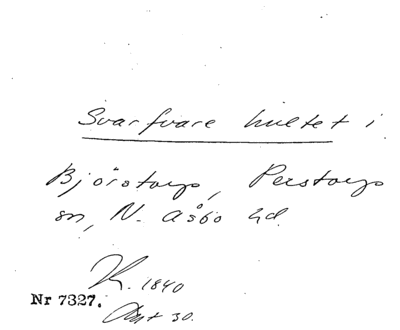 Svarfvare hultet i
Björstorp, Perstorp
sn, N. Åsbo hd.
K. 1840
Nr 7327.
Akt 30.